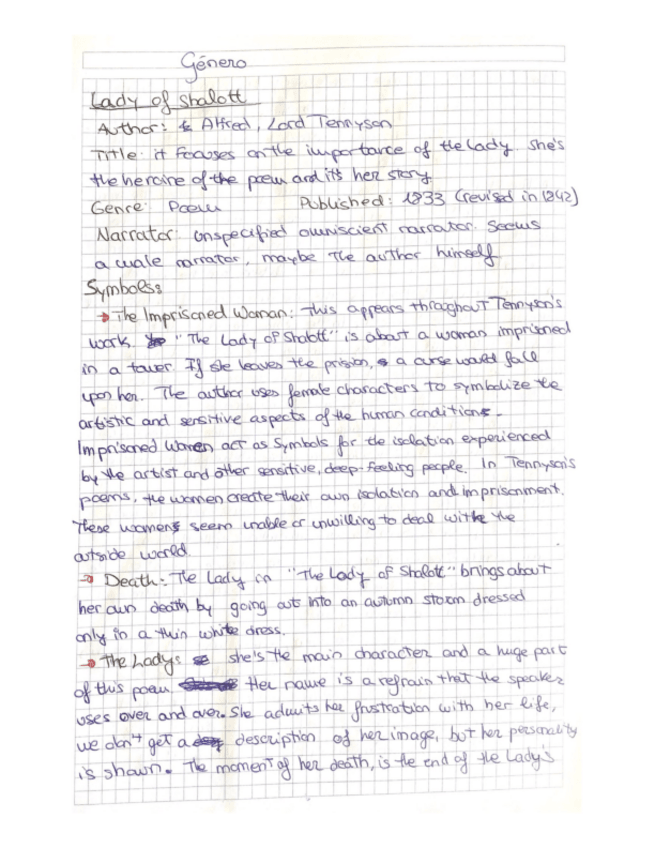 Género
Lady of Shalott
Author: Alfred, Lord Tennyson
Title: it focuses on the importance of the Lady. She's
the heroine of the poem and it's her story
Genre: Poem Published: 1833 (revised in 1842)
Narrator: Unspecified omniscient narrator. Seems
a male narrator, maybe the author himself
Symbols:
→ The Imprisoned Woman: This appears throughout Tennyson's
work. "The Lady of Shalott" is about a woman imprisoned
in a tower. If she leaves the prision, a curse would fall
upon her. The author uses female characters to symbolize the
artistic and sensitive aspects of the human condition.
Imprisoned Women act as symbols for the isolation experienced
by the artist and other sensitive, deep-feeling people. In Tennyson's
poems, the women create their own isolation and imprisonment.
These womens seem unable or unwilling to deal with the
outside world
→ Death: The Lady in "The Lady of Shalott" brings about
her own death by going out into an autumn storm dressed
only in a thin white dress.
→ The Lady: she's the main character and a huge part
of this poem Her name is a refrain that the speaker
uses over and over. She admits her frustration with her life,
we don't get a description of her image, but her personality
is shown. The moment of her death, is the end of the Lady's